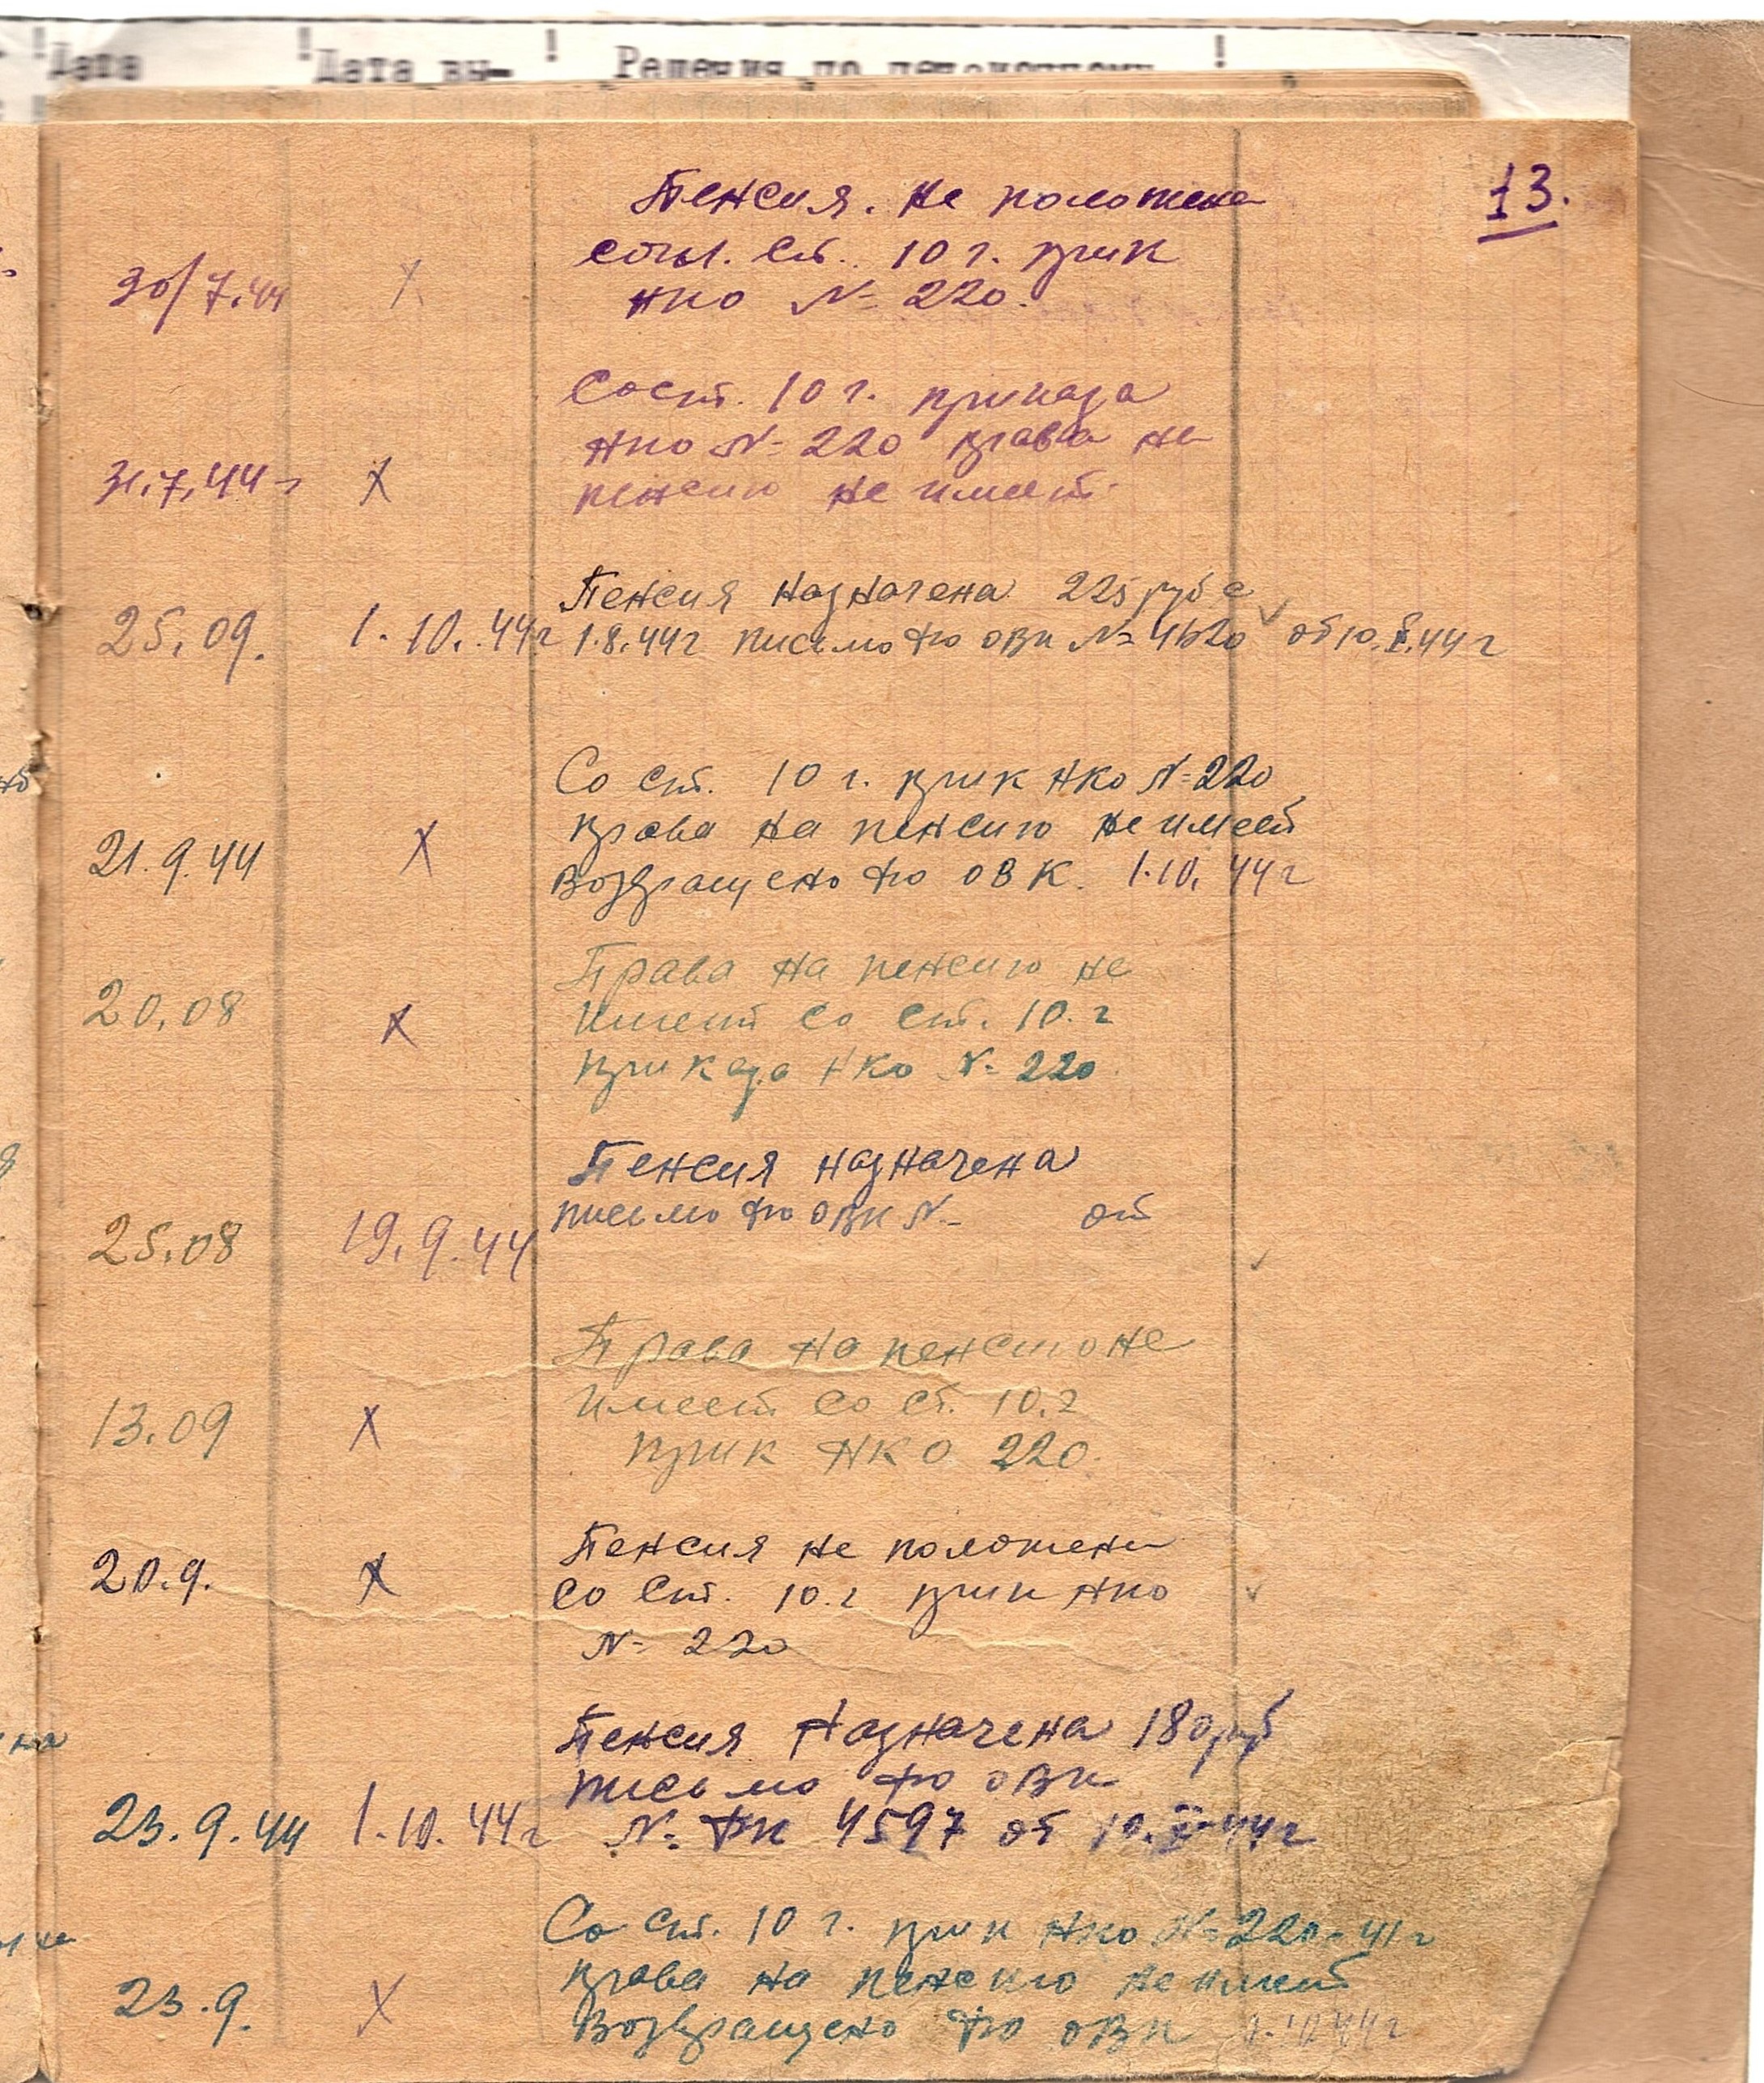 Дата Дата вы- Решения по пенсионному
13.
Пенсия. не положена
согл. Ст. 10 г. прик
30/7.44 X НКО № 220.
Со ст. 10 г. приказа
НКО № 220 права на
31.7.44 г X пенсию не имеет.
Пенсия назначена 225 руб с
25.09. 1.10.44г 1.8.44г письмо ОВК № 4620 от 10.X.44г
Со ст. 10 г. прик НКО №220
права на пенсию не имеет
21.9.44 X
Возвращено ОВК. 1.10.44г
Права на пенсию не
20.08 X имеет со ст. 10.г
приказа НКО № 220.
Пенсия назначена
письмо ОВК № от
25.08 19.9.44
Права на пенсию не
имеет со ст. 10.г
13.09 X прик НКО 220.
Пенсия не положена
20.9. X со ст. 10.г прик НКО
№ 220
Пенсия Назначена 180 руб
письмо ОВК
23.9.44 1.10.44г № 4597 от 10.X.44г
Со ст. 10 г. прик НКО № 220-41г
права на пенсию не имеет
23.9. X Возвращено ОВК 1.10.44г